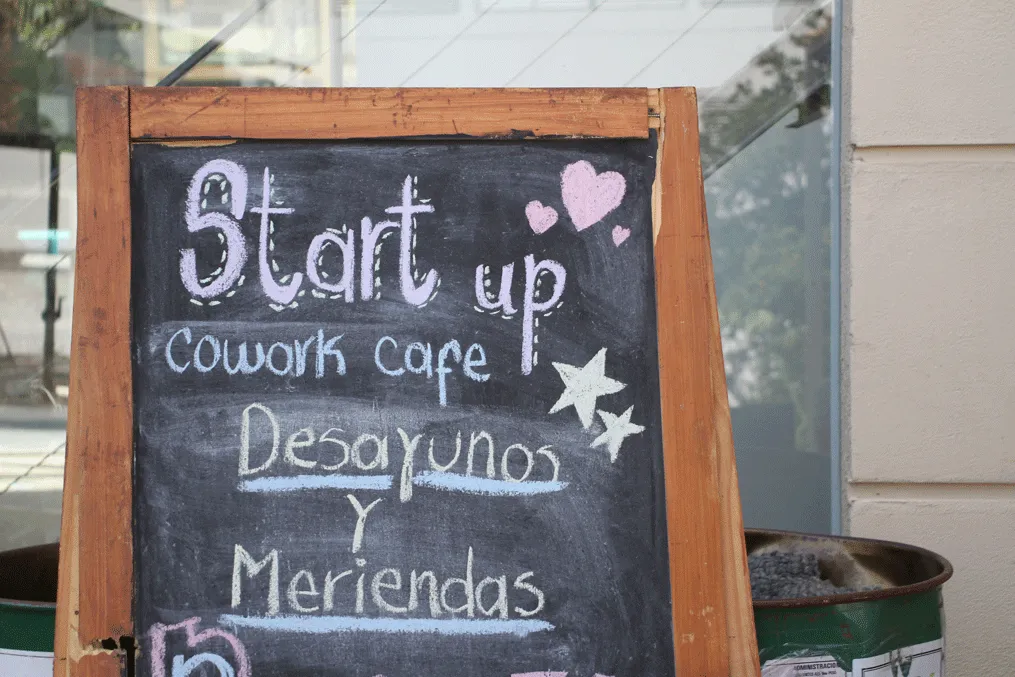 Start up
cowork cafe
Desayunos
y
Meriendas
ADMINISTRACION